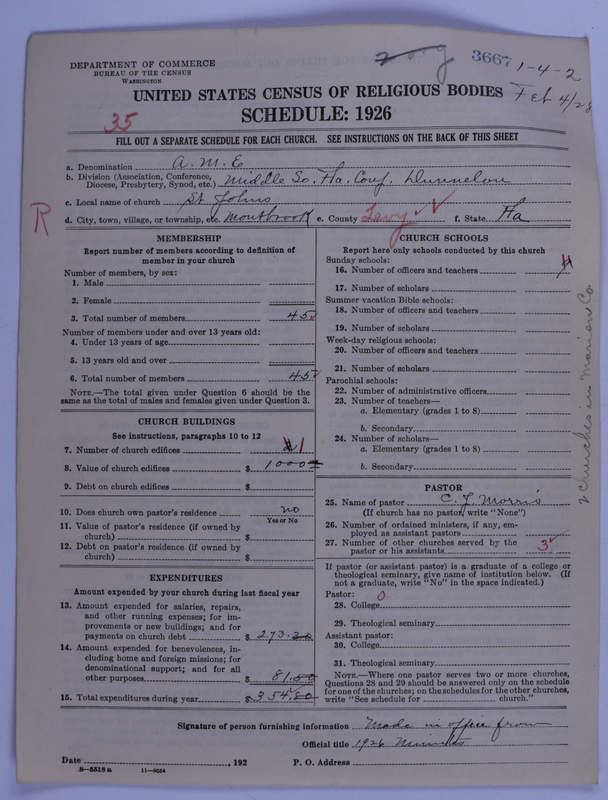 DEPARTMENT OF COMMERCE
BUREAU OF THE CENSUS
WASHINGTON
3667 1-4-2
Feb 4/28
UNITED STATES CENSUS OF RELIGIOUS BODIES
SCHEDULE: 1926
35
FILL OUT A SEPARATE SCHEDULE FOR EACH CHURCH. SEE INSTRUCTIONS ON THE BACK OF THIS SHEET
a. Denomination A. M. E
b. Division (Association, Conference, Diocese, Presbytery, Synod, etc.) Middle So. Fla. Conf. Dunnelon
c. Local name of church St Johns
d. City, town, village, or township, etc. Montbrook e. County Levy f. State Fla
R
MEMBERSHIP
Report number of members according to definition of
member in your church
Number of members, by sex:
1. Male
2. Female
3. Total number of members 45
Number of members under and over 13 years old:
4. Under 13 years of age
5. 13 years old and over
6. Total number of members 45
NOTE.—The total given under Question 6 should be
same as the total of males and females given under Question 3.
CHURCH BUILDINGS
See instructions, paragraphs 10 to 12
7. Number of church edifices 1
8. Value of church edifices $ 1000
9. Debt on church edifices $
10. Does church own pastor's residence no
Yes or No
11. Value of pastor's residence (if owned by
church) $
12. Debt on pastor's residence (if owned by
church) $
EXPENDITURES
Amount expended by your church during last fiscal year
13. Amount expended for salaries, repairs,
and other running expenses; for im-
provements or new buildings; and for
payments on church debt $ 273.30
14. Amount expended for benevolences, in-
cluding home and foreign missions; for
denominational support; and for all
other purposes $ 81.50
15. Total expenditures during year $ 354.80
CHURCH SCHOOLS
Report here only schools conducted by this church
Sunday schools:
16. Number of officers and teachers
17. Number of scholars
Summer vacation Bible schools:
18. Number of officers and teachers
19. Number of scholars
Week-day religious schools:
20. Number of officers and teachers
21. Number of scholars
Parochial schools:
22. Number of administrative officers
23. Number of teachers—
a. Elementary (grades 1 to 8)
b. Secondary
24. Number of scholars—
a. Elementary (grades 1 to 8)
b. Secondary
PASTOR
25. Name of pastor C. J. Morris
(If church has no pastor, write "None")
26. Number of ordained ministers, if any, em-
ployed as assistant pastors
27. Number of other churches served by the
pastor or his assistants 3
If pastor (or assistant pastor) is a graduate of a college or
theological seminary, give name of institution below. (If
not a graduate, write "No" in the space indicated.)
Pastor: 0
28. College
29. Theological seminary
Assistant pastor:
30. College
31. Theological seminary
NOTE.—Where one pastor serves two or more churches,
Questions 28 and 29 should be answered only on the schedule
for one of the churches; on the schedules for the other churches,
write "See schedule for church."
2 churches in Marion Co
Signature of person furnishing information Made in office from
Official title 1926 Minutes
Date , 192 P. O. Address
8—5518a 11—9054